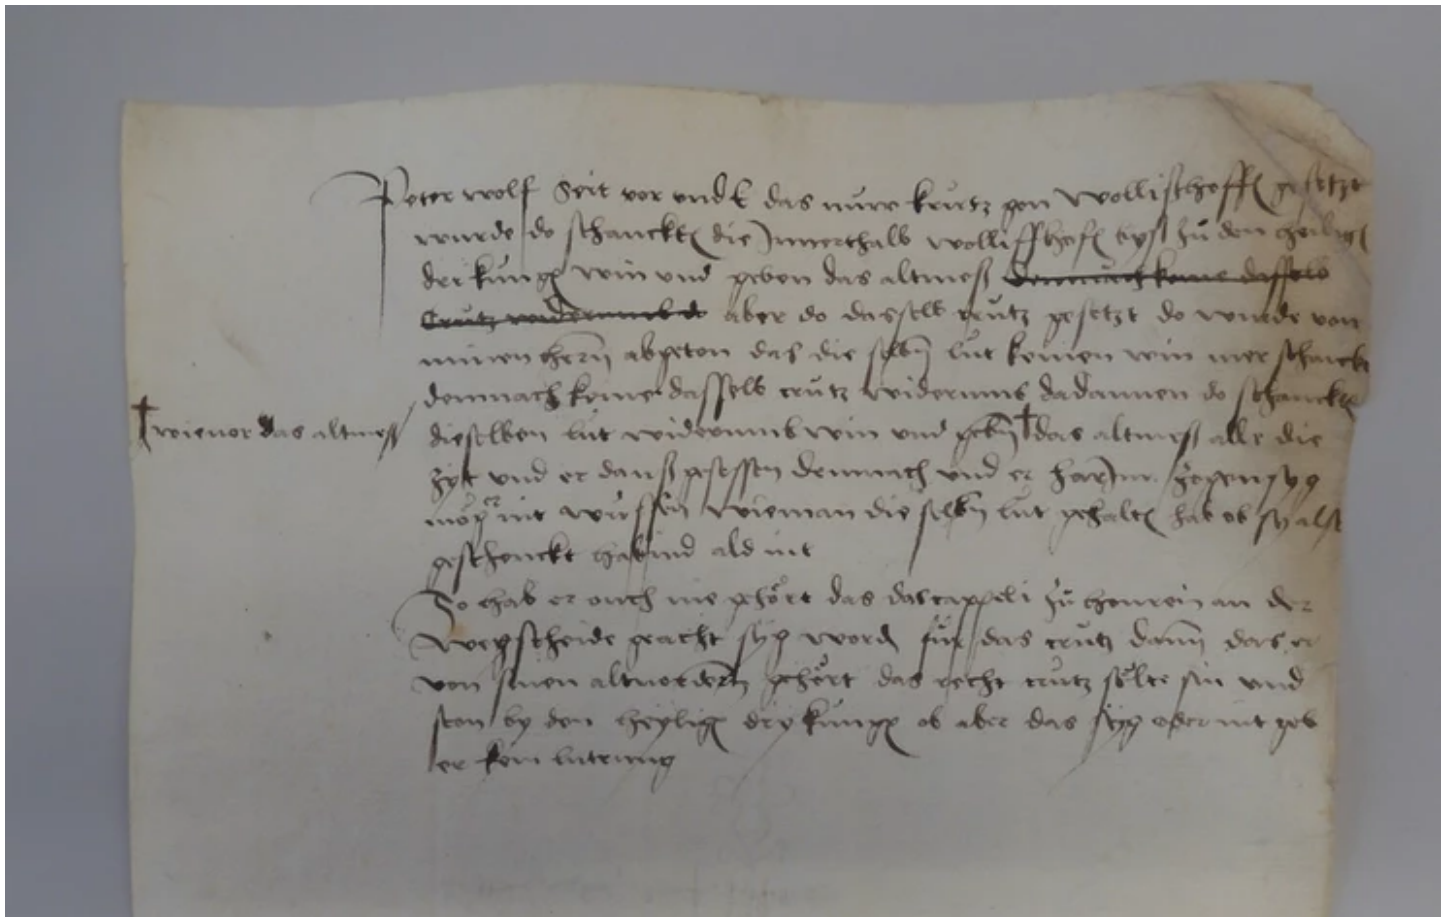 Peter wolf Seit vor und E das nuwe krutz gen Wollisthoffen gesetzt
wurde do schanckten die Innerthalb wollisshofen bys zu den heiligen
dry kungen win und geben das altmess demnach kome dasselb
Crutz widerumb do aber do dasselb crutz gesetzt do wurde von
minen herrn abgeton das die selben lut keinen win mer schanckt
demnach keme dasselb crutz widerumb dadannen do schanckten
† wie vor das altmess
dieselben lut widerumb win und geben † das altmess alle die
zyt und er daus gesessen demnach und er harin gezogen syg
mög er nit wüssen wie man die selben lut gehalten hab ob sy als
geschenckt habind ald nit
So hab er ouch nie gehört das das cappeli zu honrein an der
wegscheide geacht syg worden für das crutz dann das er
von sinen altvordern gehört das recht crutz sölte sin und
sten by den heyligen dry kungen ob aber das syg oder nit geb
er kein lutrung